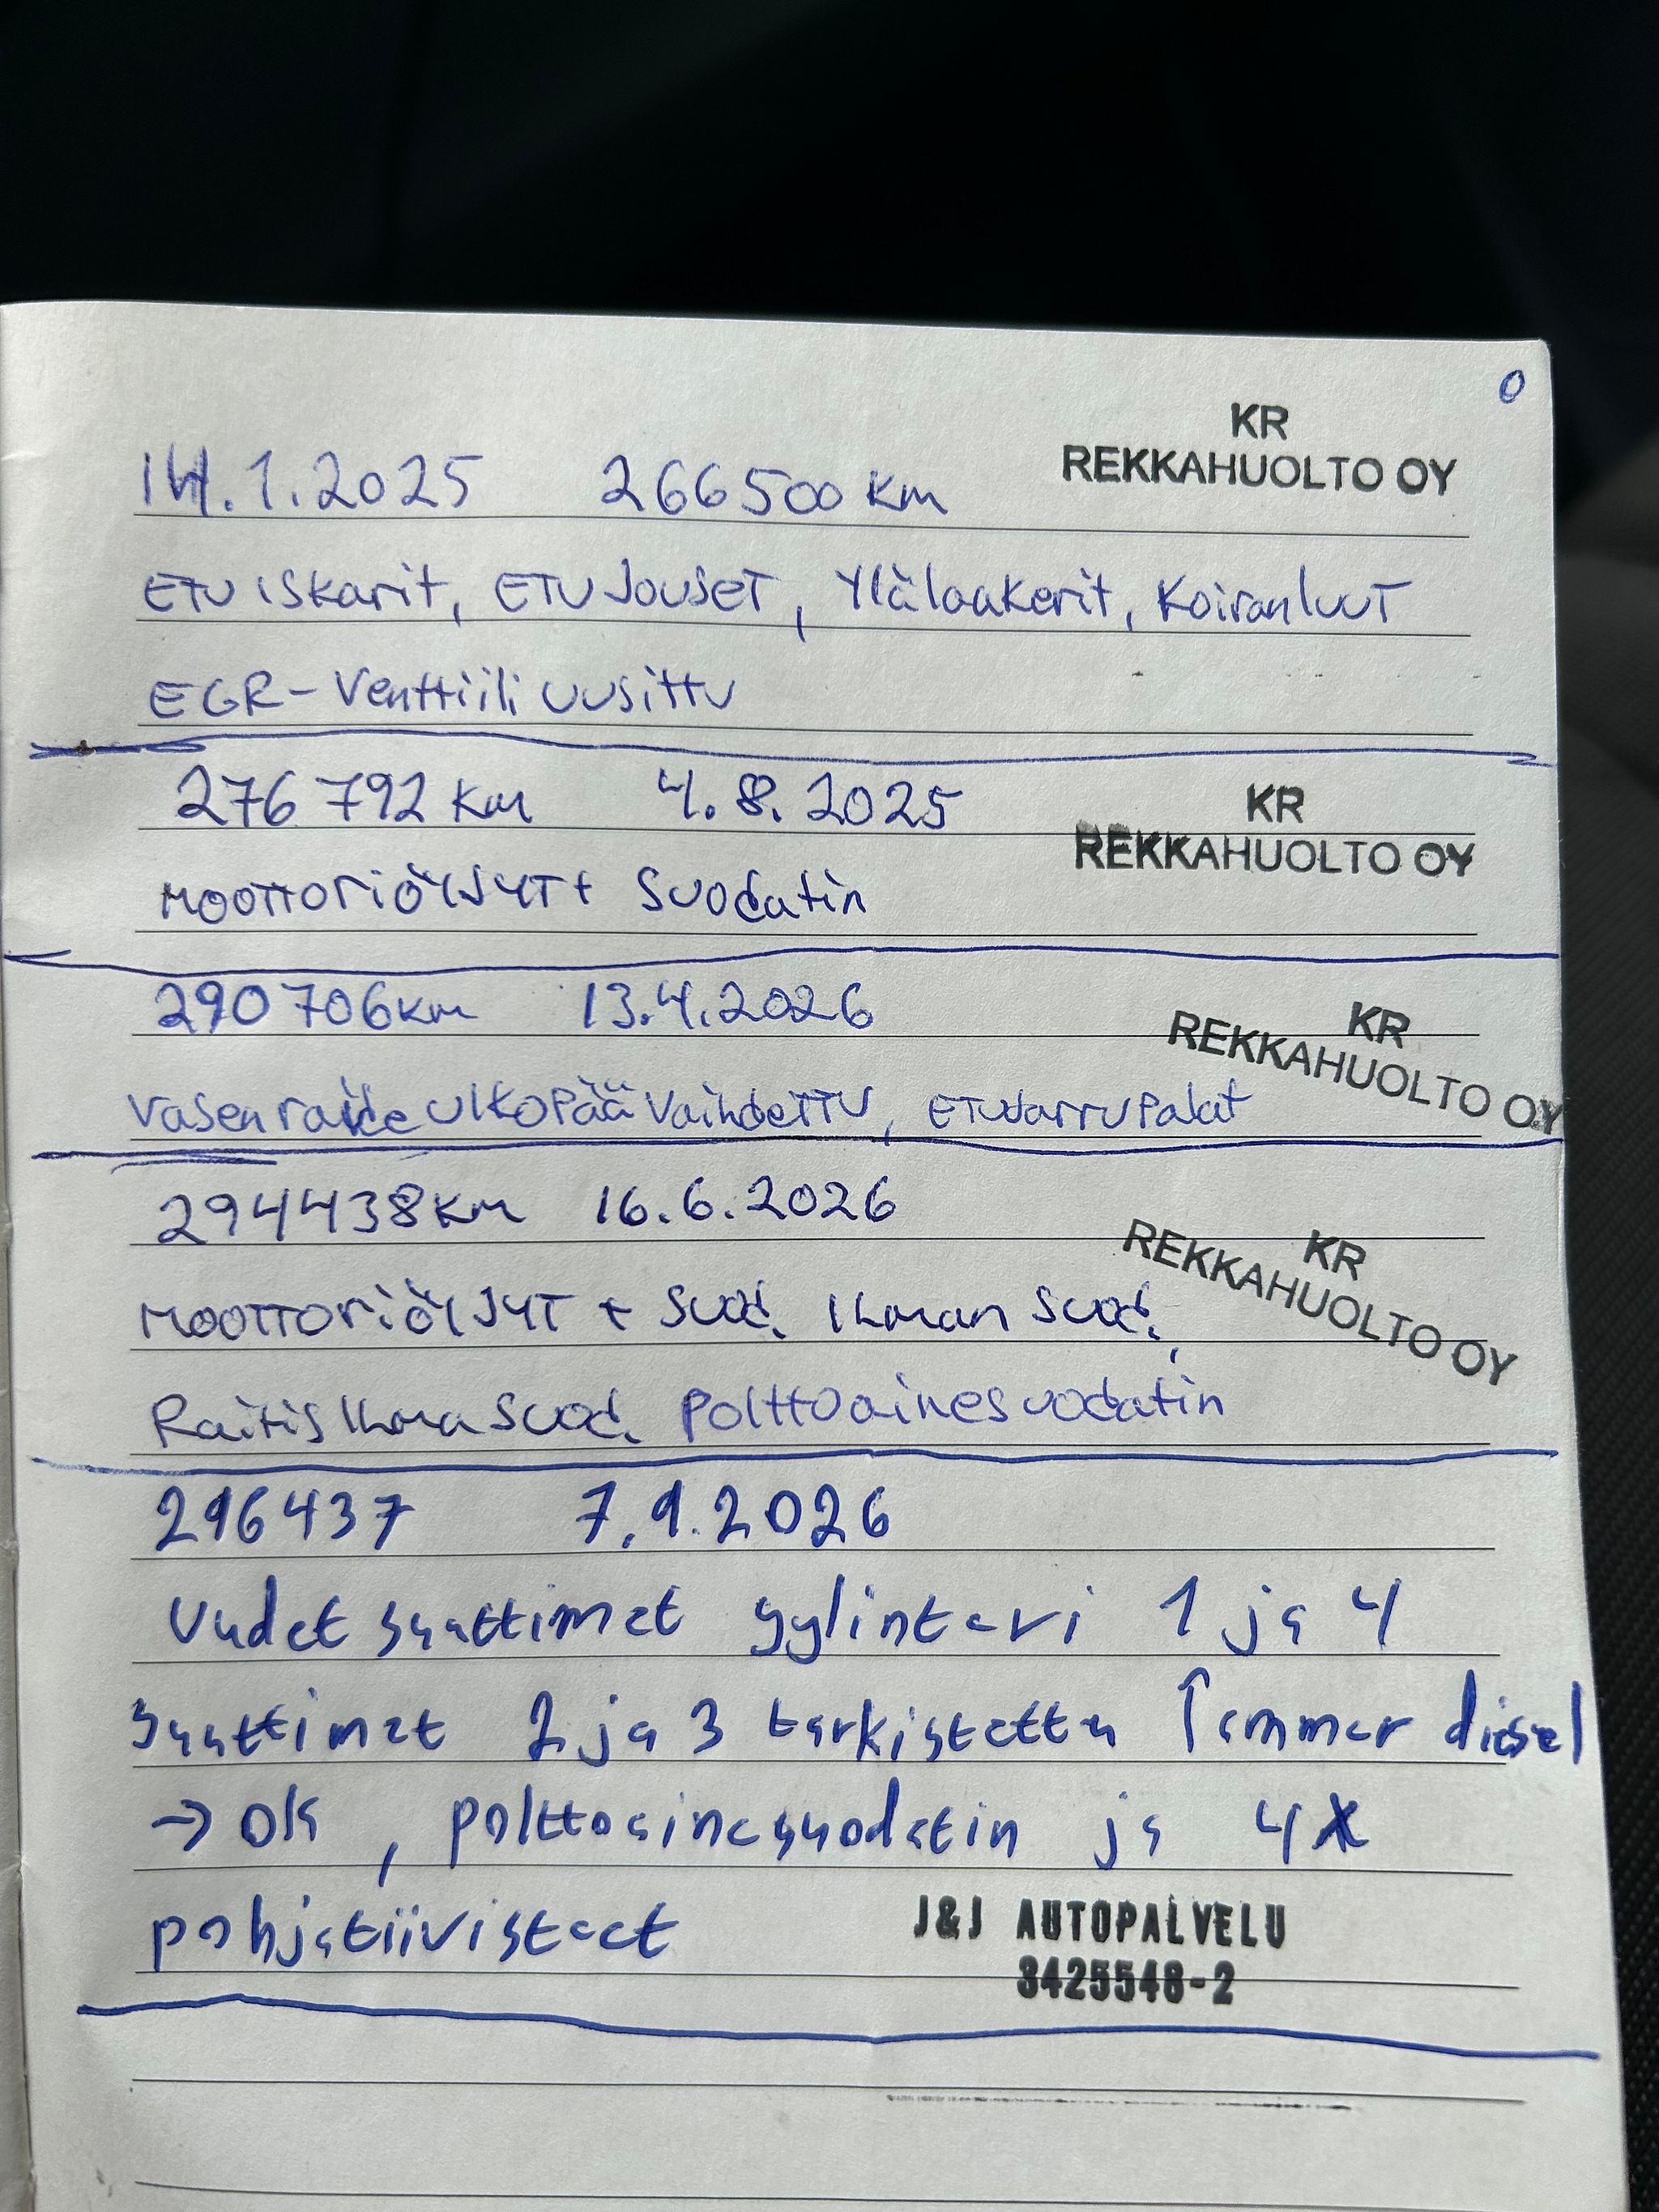 0
KR
14.1.2025 266500 km REKKAHUOLTO OY
ETU iskarit, ETU Jouset, Ylälaakerit, Koiranluut
EGR-Venttiili uusittu
276 792 km 4.8.2025 KR
REKKAHUOLTO OY
Moottoriöljyt + Suodatin
290 706 km 13.4.2026 KR
REKKAHUOLTO OY
Vasen raide ulkopää vaihdettu, etujarrupalat
294438 km 16.6.2026 KR
REKKAHUOLTO OY
Moottoriöljyt + Suod. Ilman Suod,
Raitis Ilma Suod. Polttoainesuodatin
296437 7.9.2026
Uudet suuttimet sylinteri 1 ja 4
Suuttimet 2 ja 3 tarkistettu diesel
→ ok, polttoainesuodatin ja 4x
pohjatiivisteet J&J AUTOPALVELU
3425548-2